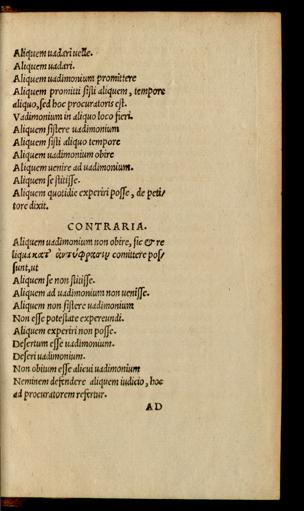 Aliquem uadari uelle.
Aliquem uadari.
Aliquem uadimonium promittere
Aliquem promitti sisti aliquem, tempore
aliquo, sed hoc procuratoris est.
Vadimonium in aliquo loco fieri.
Aliquem sistere uadimonium
Aliquem sisti aliquo tempore
Aliquem uadimonium obire
Aliquem uenire ad uadimonium.
Aliquem se stitisse.
Aliquem quotidie experiri posse, de peti/
tore dixit.
CONTRARIA.
Aliquem uadimonium non obire, sic & re
liqua κατ' ἀντίφρασιν comittere pos/
sunt, ut
Aliquem se non stitisse.
Aliquem ad uadimonium non uenisse.
Aliquem non sistere uadimonium
Non esse potestate expereundi.
Aliquem experiri non posse.
Desertum esse uadimonium.
Deseri uadimonium.
Non obitum esse alicui uadimonium
Neminem defendere aliquem iudicio, hoc
ad procuratorem refertur.
AD